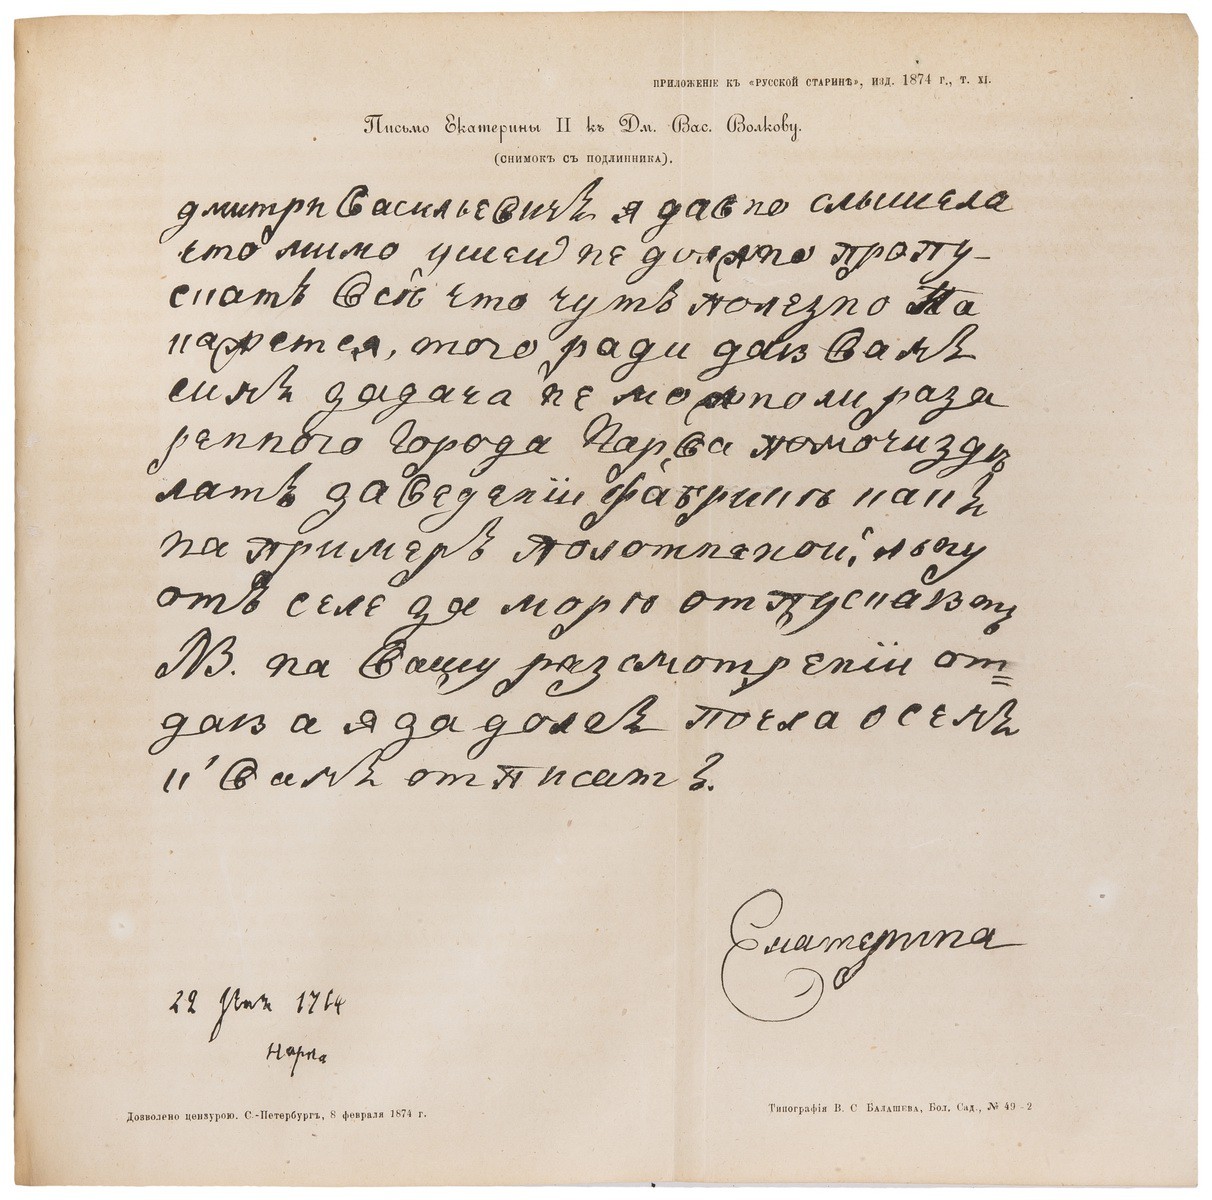 ПРИЛОЖЕНІЕ КЪ «РУССКОЙ СТАРИНѢ», ИЗД. 1874 Г., Т. XI.
Письмо Екатерины II къ Дм. Вас. Волкову.
(СНИМОКЪ СЪ ПОДЛИННИКА).
дмитри Васильевичь я давно слышела
что мимо ушей не должно пропу-
скать всё что чуть полезно па
кажется, того ради даю Вамъ
сикъ задача неможноли раза
реннаго города Нарва помочи здѣ
лать заведеніи фабрикъ какъ
на примеръ полотненой, льну
отъ селе за морю отпускаютъ
NB. на Вашу разсмотреніи от=
даю а я за долгъ почла осемъ
къ Вамъ отписать.
Екатерина
22 1764
Нарва
Дозволено цензурою. С.-Петербургъ, 8 февраля 1874 г.
Типографія В. С. БАЛАШЕВА, Бол. Сад., № 49-2